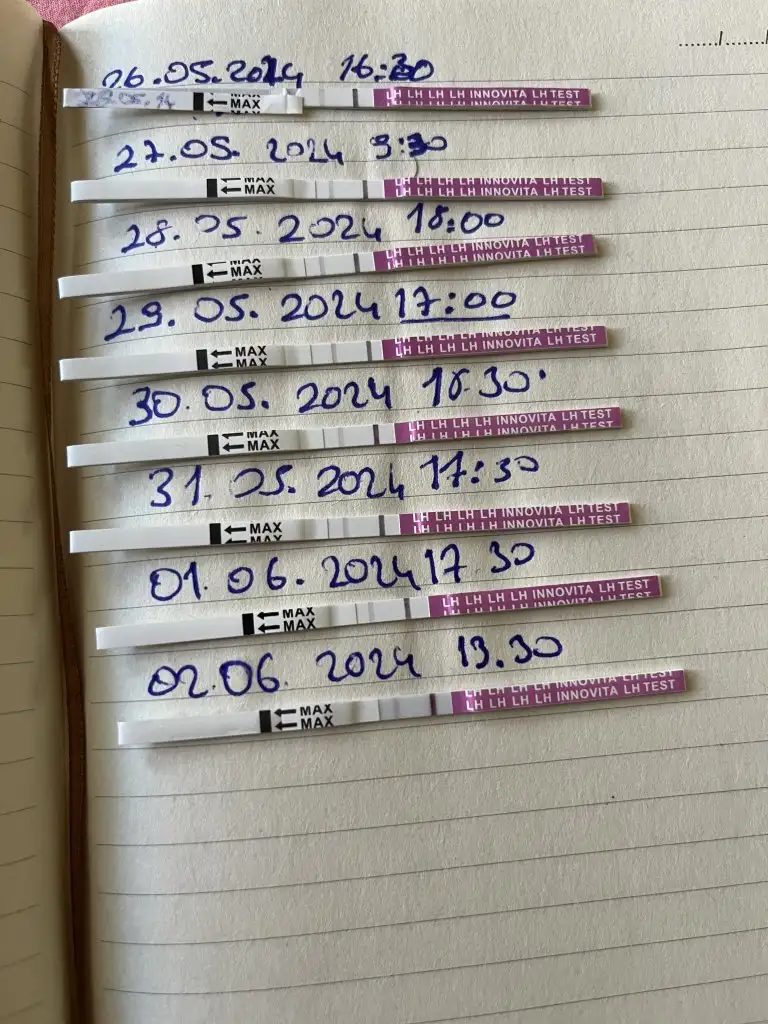 ....../......
26.05.2024 16:30
← MAX LH LH LH LH INNOVITA LH TEST
LH LH LH LH INNOVITA LH TEST
27.05. 2024 9:30
← MAX LH LH LH LH INNOVITA LH TEST
← MAX LH LH LH LH INNOVITA LH TEST
28.05.2024 18:00
← MAX LH LH LH LH INNOVITA LH TEST
← MAX LH LH LH LH INNOVITA LH TEST
29.05.2024 17:00
← MAX LH LH LH LH INNOVITA LH TEST
← MAX LH LH LH LH INNOVITA LH TEST
30.05.2024 18.30
← MAX LH LH LH LH INNOVITA LH TEST
← MAX LH LH LH LH INNOVITA LH TEST
31.05.2024 17:30
← MAX LH LH LH LH INNOVITA LH TEST
← MAX LH LH LH LH INNOVITA LH TEST
01.06.2024 17 30
← MAX LH LH LH LH INNOVITA LH TEST
← MAX LH LH LH LH INNOVITA LH TEST
02.06. 2024 13.30
← MAX LH LH LH LH INNOVITA LH TEST
← MAX LH LH LH LH INNOVITA LH TEST